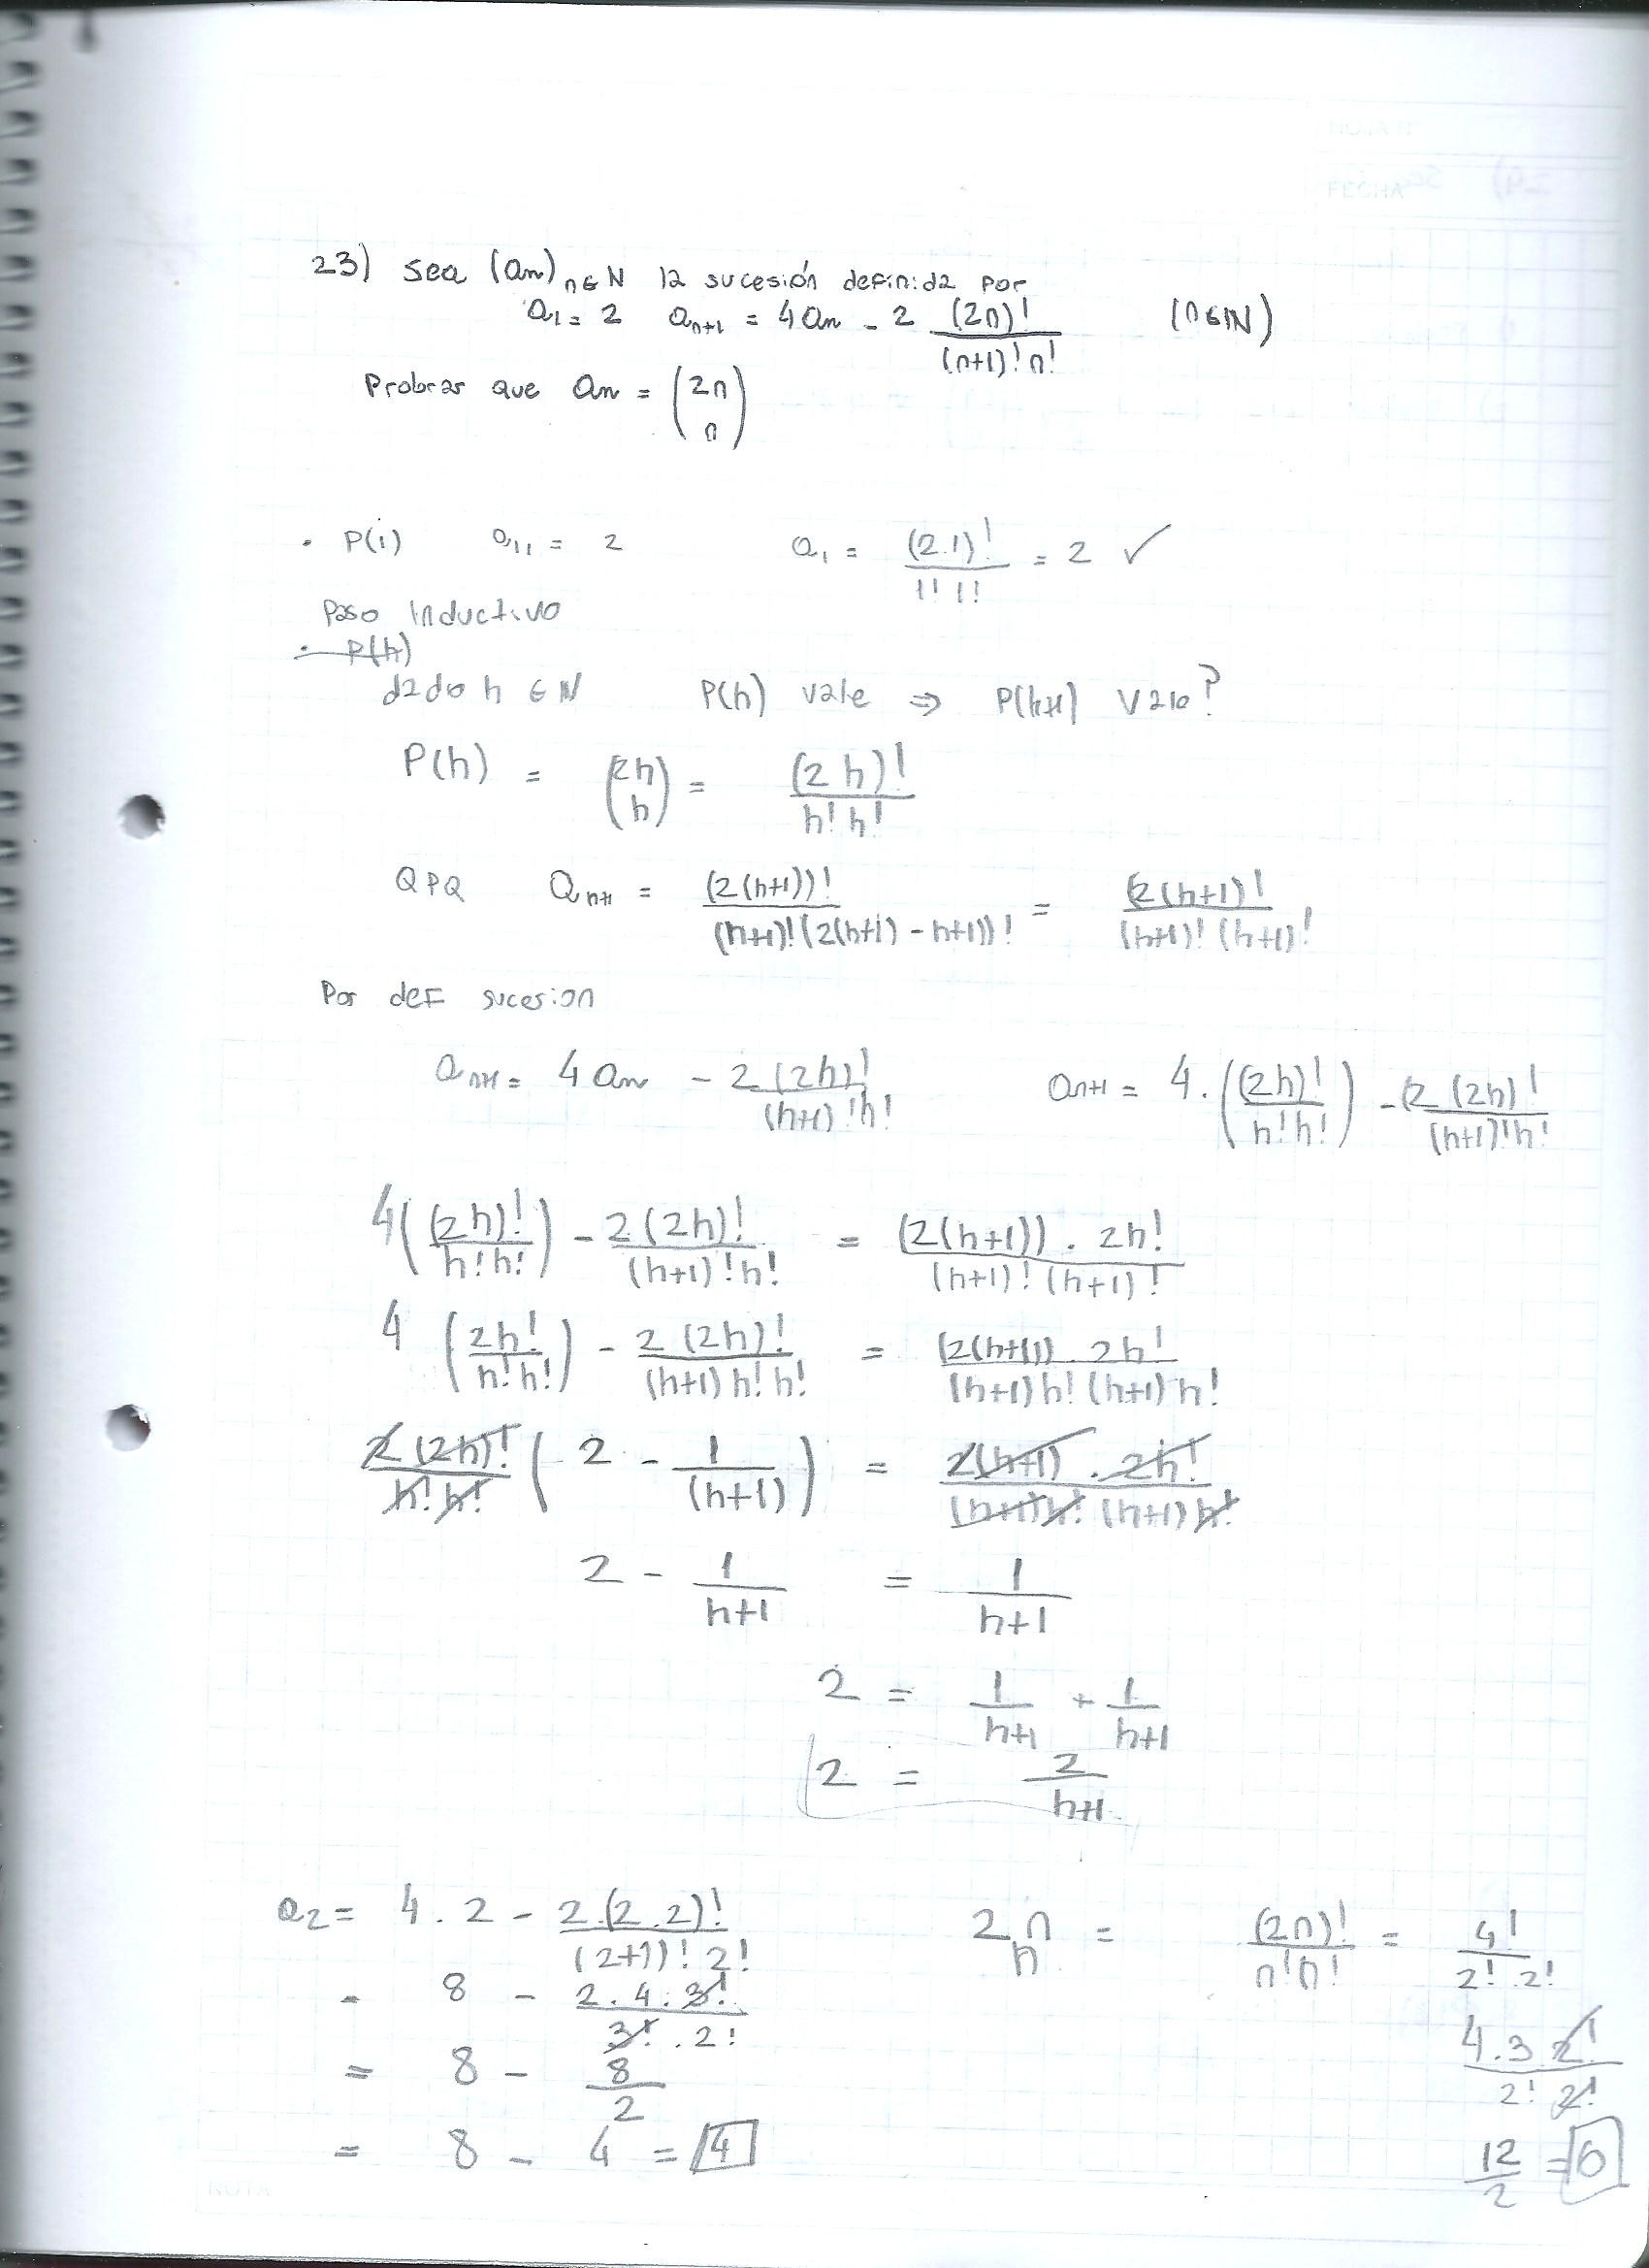 HOJA Nº
FECHA
23) sea (an) n∈N la sucesión definida por
a1 = 2   an+1 = 4an - 2 (2n)! / (n+1)! n!   (n∈N)
Probrar que an = (2n n)
• P(1)   a1 = 2   a1 = (2.1)! / 1! 1! = 2 ✓
Paso inductivo
• P(h)
dado h ∈ N   P(h) vale ⇒ P(h+1) vale?
P(h) = (2h h) = (2h)! / h! h!
QPQ   an+1 = (2(h+1))! / (h+1)! (2(h+1) - h+1))! = (2(h+1)! / (h+1)! (h+1)!
Por def sucesion
an+1 = 4 an - 2 (2h)! / (h+1)! h!   an+1 = 4. ((2h)! / h! h!) - (2 (2h)! / (h+1)! h!
4 ((2h)! / h! h!) - 2 (2h)! / (h+1)! h! = (2(h+1)) . 2h! / (h+1)! (h+1)!
4 (2h! / h! h!) - 2 (2h)! / (h+1) h! h! = (2(h+1)) . 2h! / (h+1) h! (h+1) h!
2 (2h)! / h! h! (2 - 1 / (h+1)) = 2(h+1) . 2h! / (h+1) h! (h+1) h!
2 - 1 / h+1 = 1 / h+1
2 = 1 / h+1 + 1 / h+1
2 = 2 / h+1
a2 = 4 . 2 - 2.(2.2)! / (2+1)! 2!   2n n = (2n)! / n! n! = 4! / 2! 2!
- 8 - 2 . 4 . 3! / 3! . 2!   4 . 3 2! / 2! 2!
= 8 - 8 / 2
= 8 - 4 = 4   12 / 2 = 6
NOTA